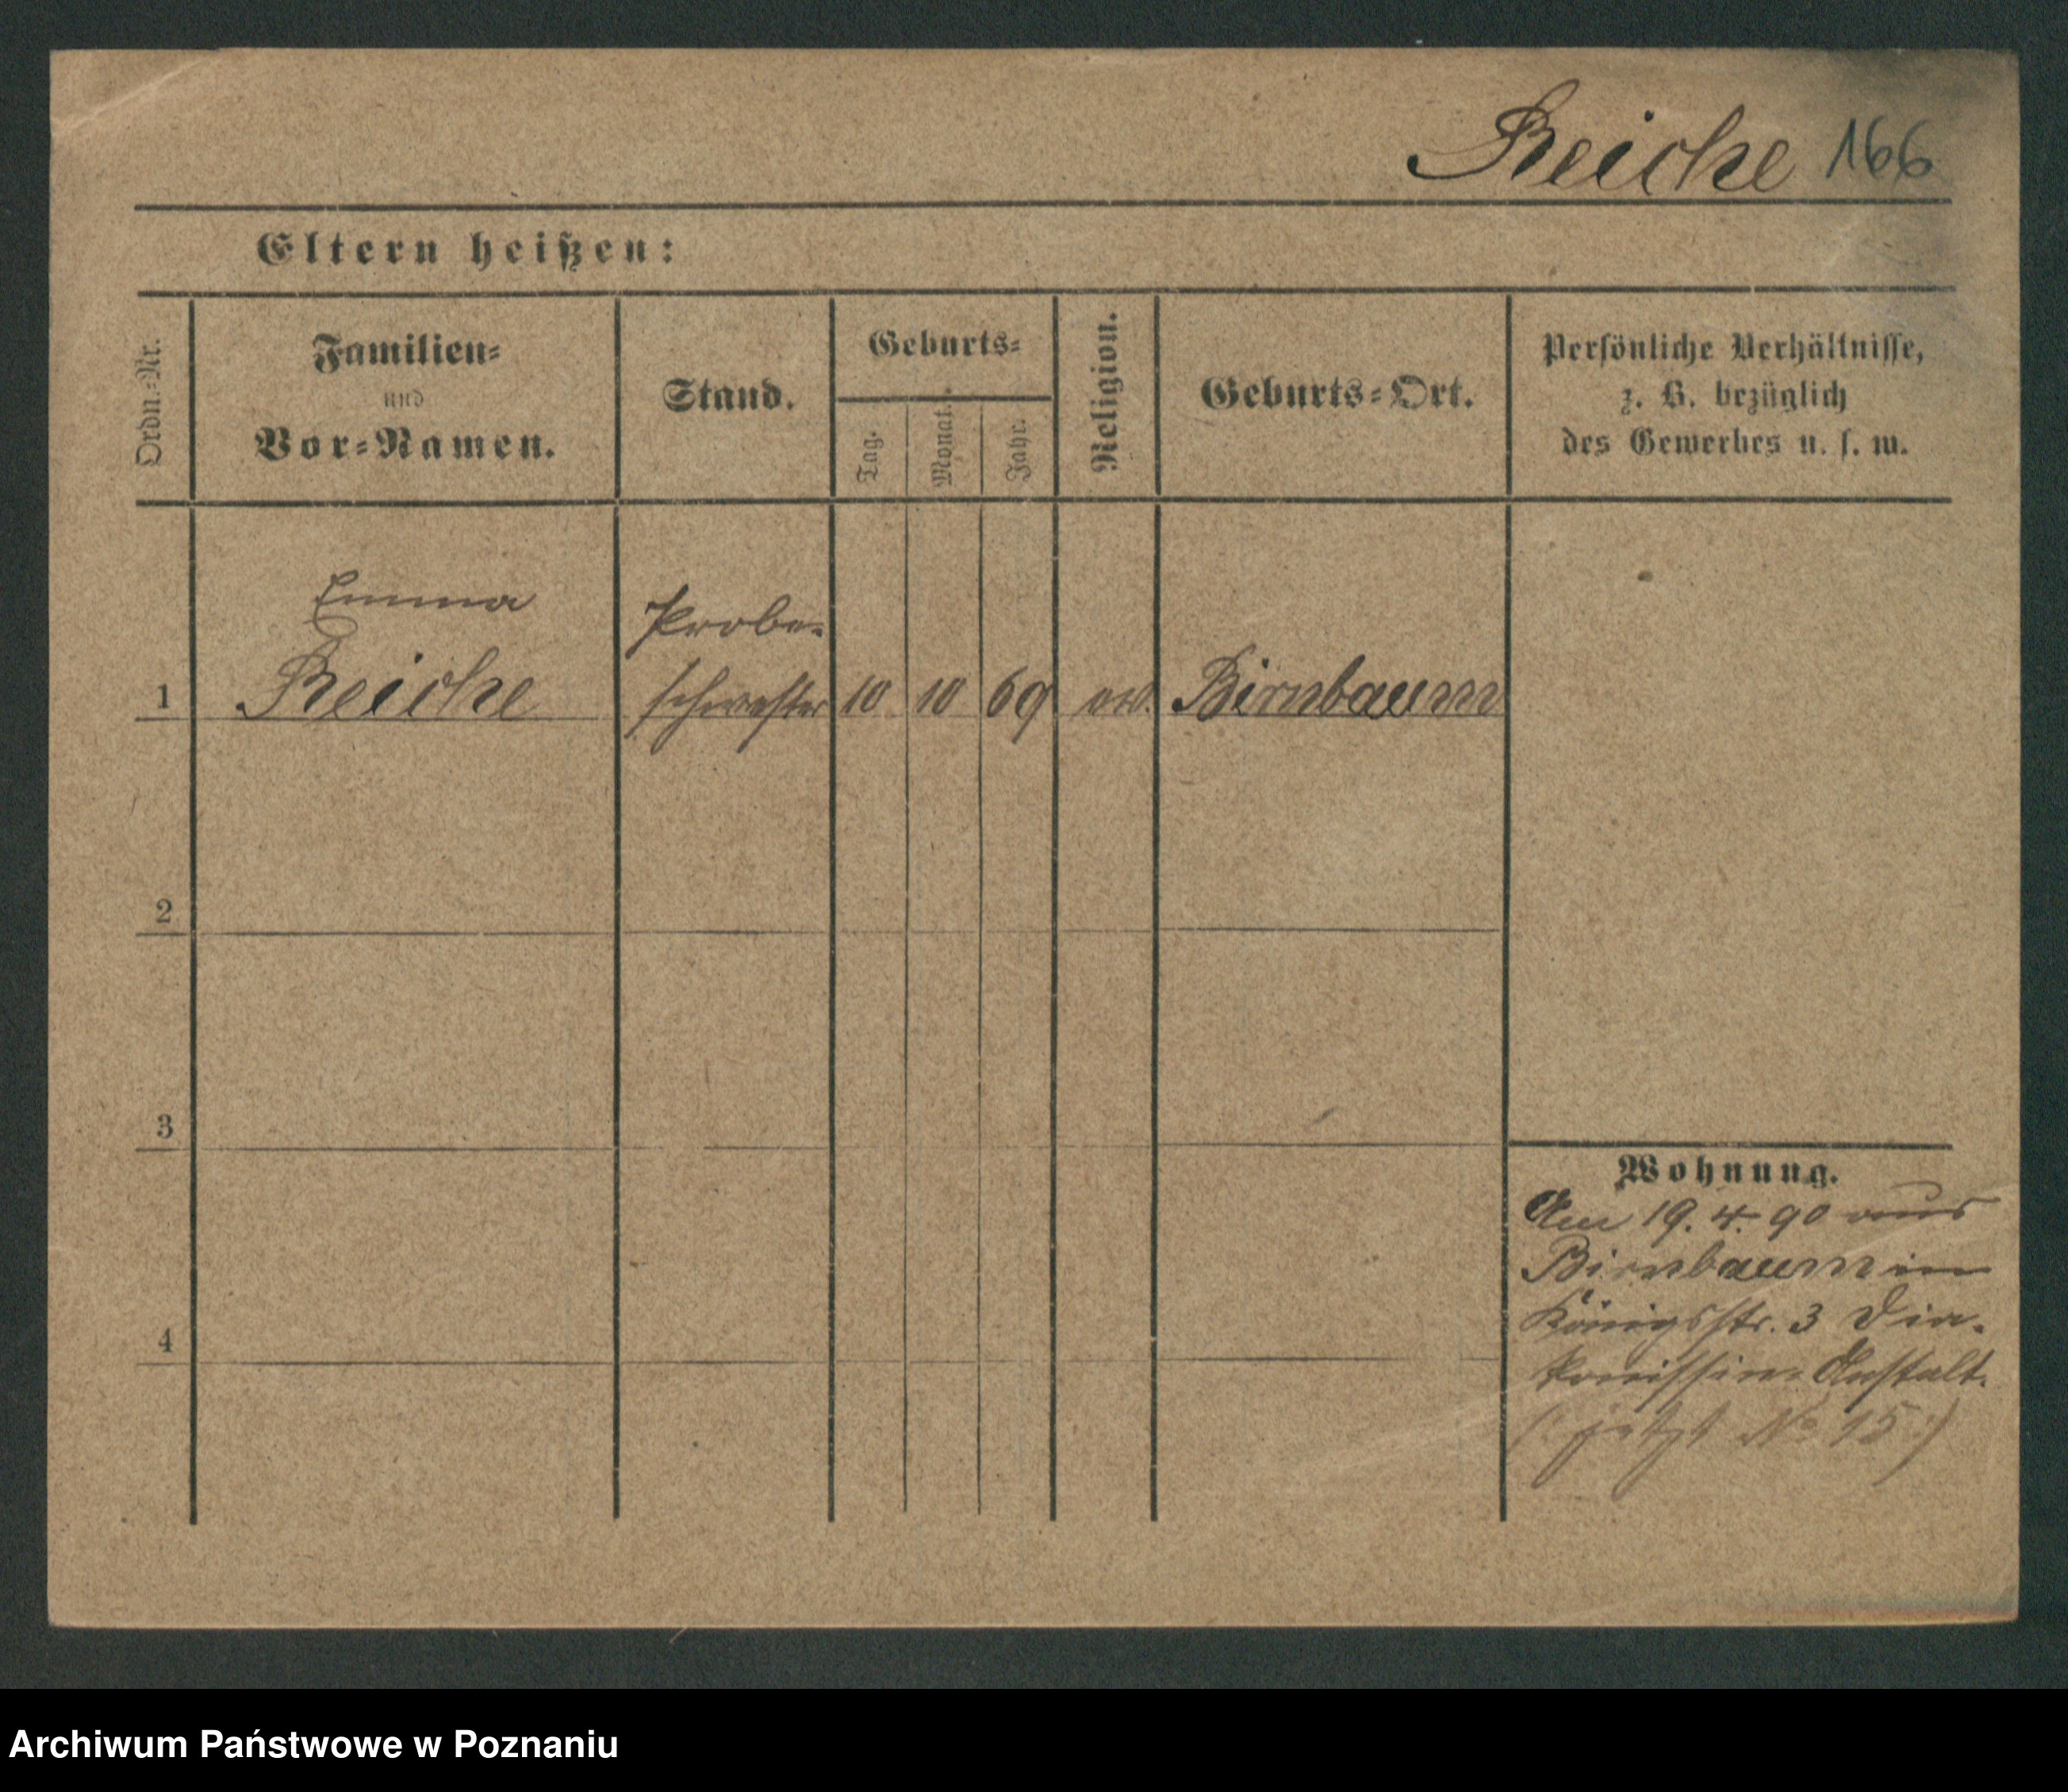 Reiche 166
Eltern heißen:
Ordn.-Nr.
Familien-
und
Vor-Namen.
Stand.
Geburts-
Tag.
Monat.
Jahr.
Religion.
Geburts-Ort.
Persönliche Verhältnisse,
z. B. bezüglich
des Gewerbes u. s. w.
Emma
Probe-
1 Reiche schwester 10 10 69 ev. Birnbaum
2
3
4
Wohnung.
Am 19. 4. 90 aus
Birnbaum in
Königsstr. 3 Dia-
konissen Anstalt.
(: jetzt No 15 :)
Archiwum Państwowe w Poznaniu